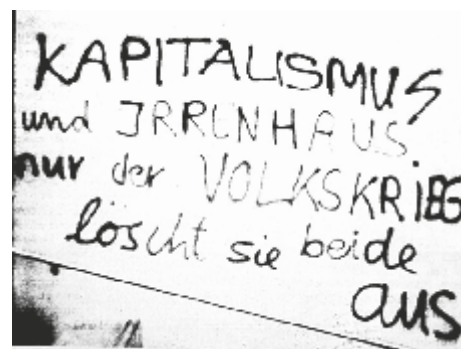 KAPITALISMUS
und IRRENHAUS
nur der VOLKSKRIEG
löscht sie beide
aus